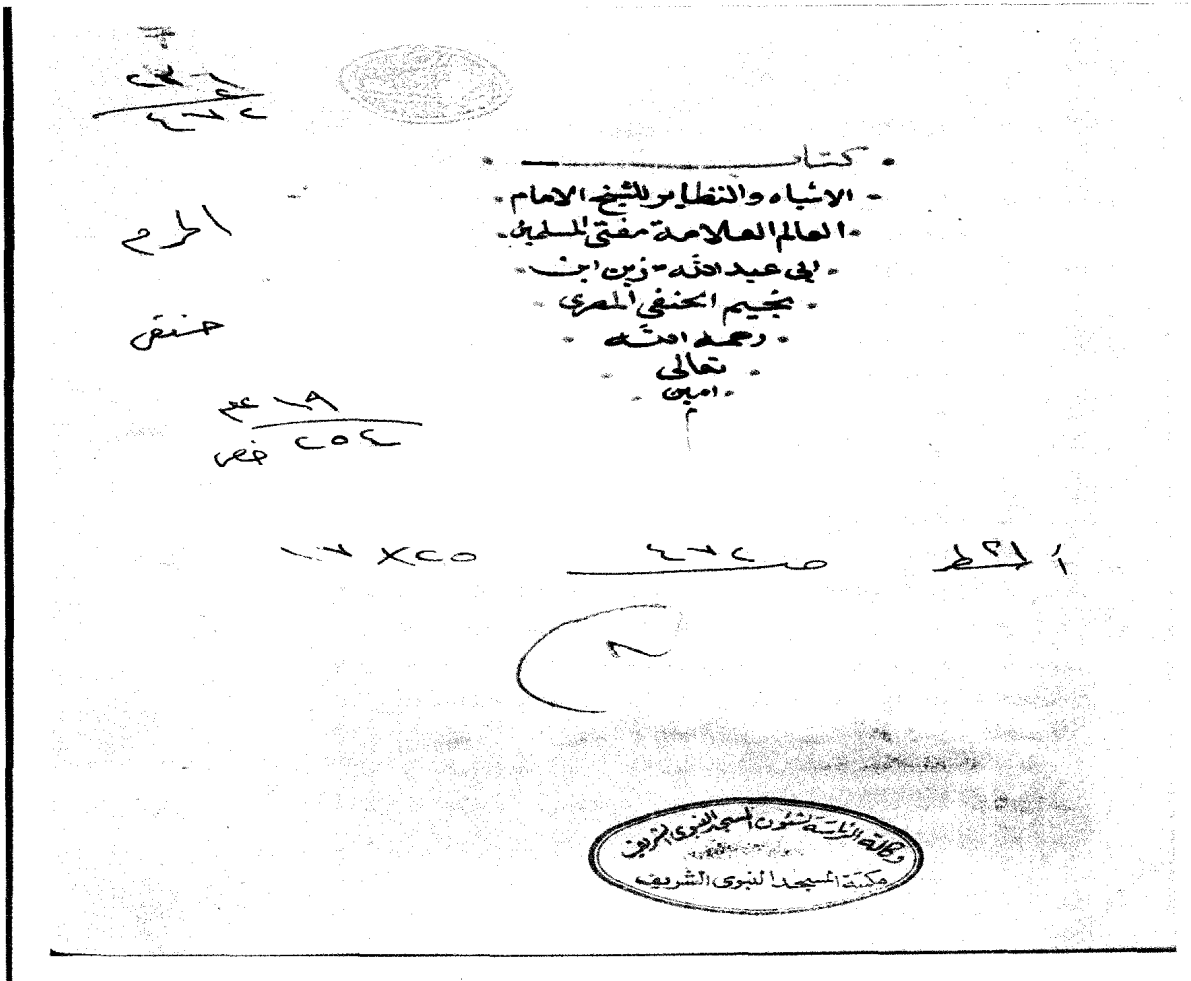 كتاب
الاشباه والنظاير للشيخ الامام
العالم العلامة مفتي المسلمين
ابي عبد الله زين ابن
نجيم الحنفي المصرى
رحمه الله
تعالى
امين
٤٧٢
الحرم
حنفى
٢٥٤
٤٧٢
٢٥ × ١٧
وكالة الرئاسة لشئون المسجد النبوى الشريف
مكتبة المسجد النبوى الشريف